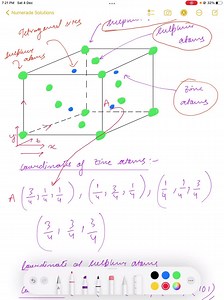 7:21 PM Sat 4 Dec
Numerade Solutions
Tetragonal sites
sulphur
sulphur
atoms
sulphur
atoms
zinc
atoms
A
y
b
x
Coordinates of zinc atoms:-
A (3/4, 1/4, 1/4), (1/4, 3/4, 1/4), (1/4, 1/4, 3/4)
(3/4, 3/4, 3/4)
Coordinates of sulphur atoms